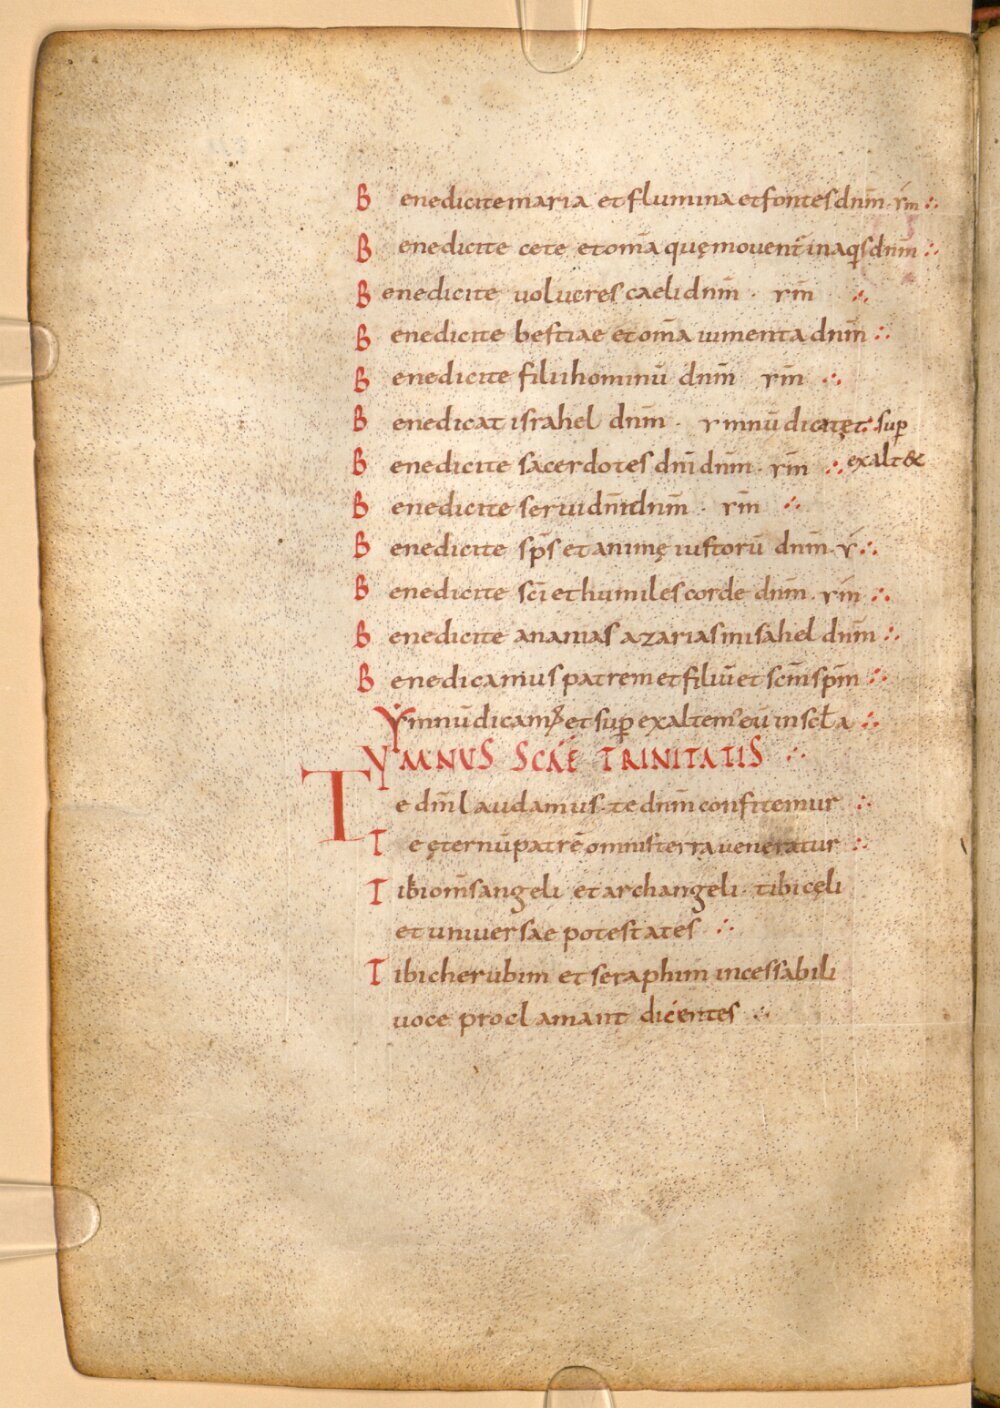 Benedicite maria et flumina et fontes dnm̄. ym̄ ∴
Benedicite cete et om̄a quę movent̄ in aq̄s dnm̄ ∴
Benedicite volucres caeli dnm̄ . ym̄ ∴
Benedicite bestiae et om̄a iumenta dnm̄ ∴
Benedicite filii hominū dnm̄ ym̄ ∴
Benedicat israhel dnm̄ . ymnū dicat et sup̄
Benedicite sacerdotes dnī dnm̄ . ym̄ ∴ exalt&
Benedicite servi dnī dnm̄ . ym̄ ∴
Benedicite sp̄s et animę iustorū dnm̄. ȳ ∴
Benedicite sc̄i et humiles corde dnm̄. ym̄ ∴
Benedicite ananias azarias misahel dnm̄ ∴
Benedicamus patrem et filiū et scm̄ spm̄ ∴
Ymnū dicam' et sup̄ exaltem' eū in scl̄a ∴
YMNUS SCAĒ TRINITATIS ∴
Te dm̄ laudamus. te dnm̄ confitemur ∴
Te ęternū patrē omnis terra veneratur ∴
Tibi om̄s angeli et archangeli. tibi cęli
et universae potestates ∴
Tibi cherubim et seraphim incessabili
voce proclamant dicentes ∴